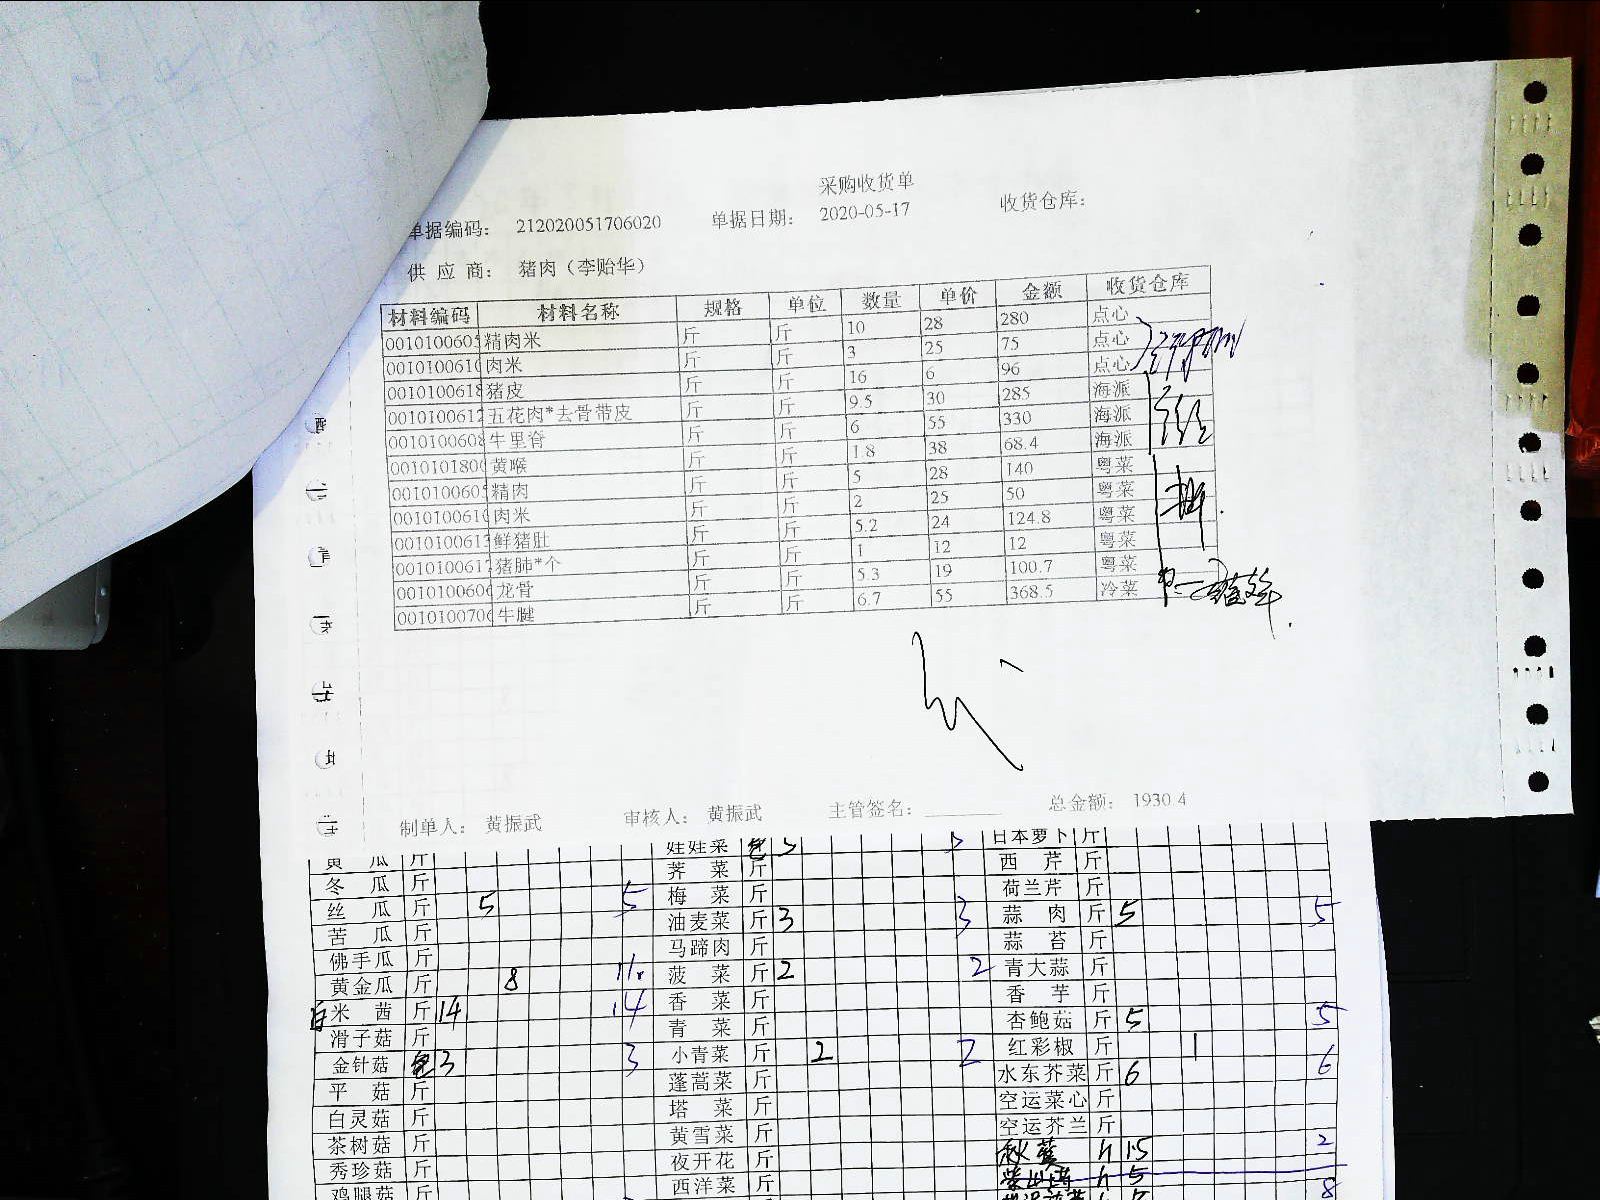 采购收货单
单据编码： 212020051706020 单据日期： 2020-05-17 收货仓库：
供 应 商： 猪肉（李贻华）
材料编码 材料名称 规格 单位 数量 单价 金额 收货仓库
0010100605 精肉米 斤 斤 10 28 280 点心
0010100610 肉米 斤 斤 3 25 75 点心
0010100618 猪皮 斤 斤 16 6 96 点心
0010100612 五花肉*去骨带皮 斤 斤 9.5 30 285 海派
0010100608 牛里脊 斤 斤 6 55 330 海派
0010101800 黄喉 斤 斤 1.8 38 68.4 海派
0010100605 精肉 斤 斤 5 28 140 粤菜
0010100610 肉米 斤 斤 2 25 50 粤菜
0010100613 鲜猪肚 斤 斤 5.2 24 124.8 粤菜
0010100617 猪肺*个 斤 斤 1 12 12 粤菜
0010100606 龙骨 斤 斤 5.3 19 100.7 粤菜
0010100706 牛腱 斤 斤 6.7 55 368.5 冷菜
制单人： 黄振武 审核人： 黄振武 主管签名： 总金额： 1930.4
黄 瓜 斤 娃娃菜 包 3 3 日本萝卜 斤
冬 瓜 斤 荠 菜 斤 西 芹 斤
丝 瓜 斤 5 5 梅 菜 斤 荷兰芹 斤
苦 瓜 斤 油麦菜 斤 3 3 蒜 肉 斤 5 5
佛手瓜 斤 马蹄肉 斤 蒜 苔 斤
黄金瓜 斤 8 菠 菜 斤 2 2 青大蒜 斤
白米 茜 斤 14 14 香 菜 斤 香 芋 斤
滑子菇 斤 青 菜 斤 杏鲍菇 斤 5 5
金针菇 包 3 3 小青菜 斤 2 2 红彩椒 斤 1
平 菇 斤 蓬蒿菜 斤 水东芥菜 斤 6 6
白灵菇 斤 塔 菜 斤 空运菜心 斤
茶树菇 斤 黄雪菜 斤 空运芥兰 斤
秀珍菇 斤 夜开花 斤 15 2
鸡腿菇 斤 西洋菜 斤 5 8